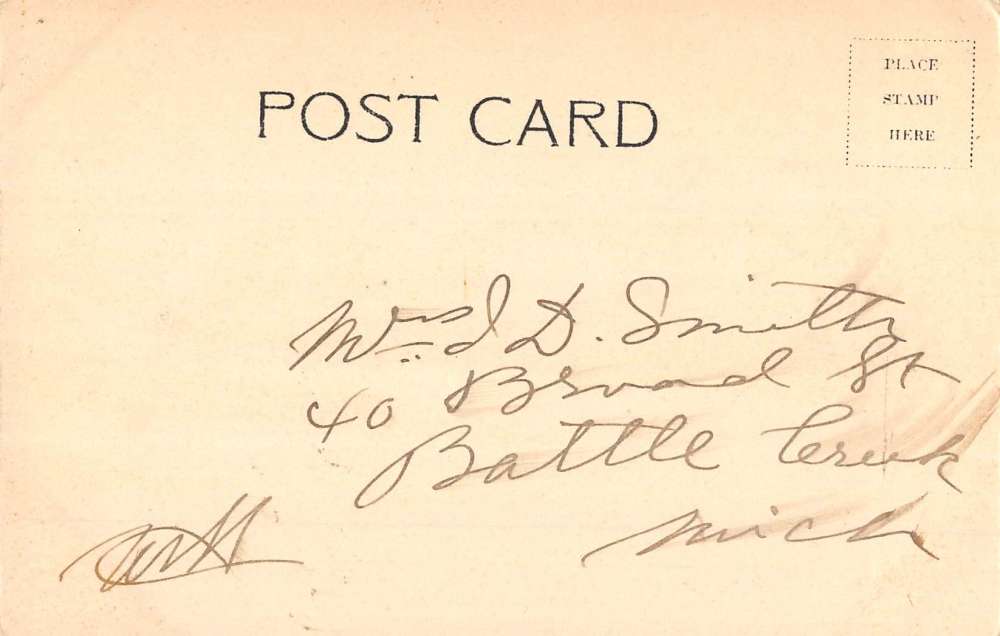 POST CARD
PLACE
STAMP
HERE
Mrs I D. Smith
40 Broad St
Battle Creek
Mich